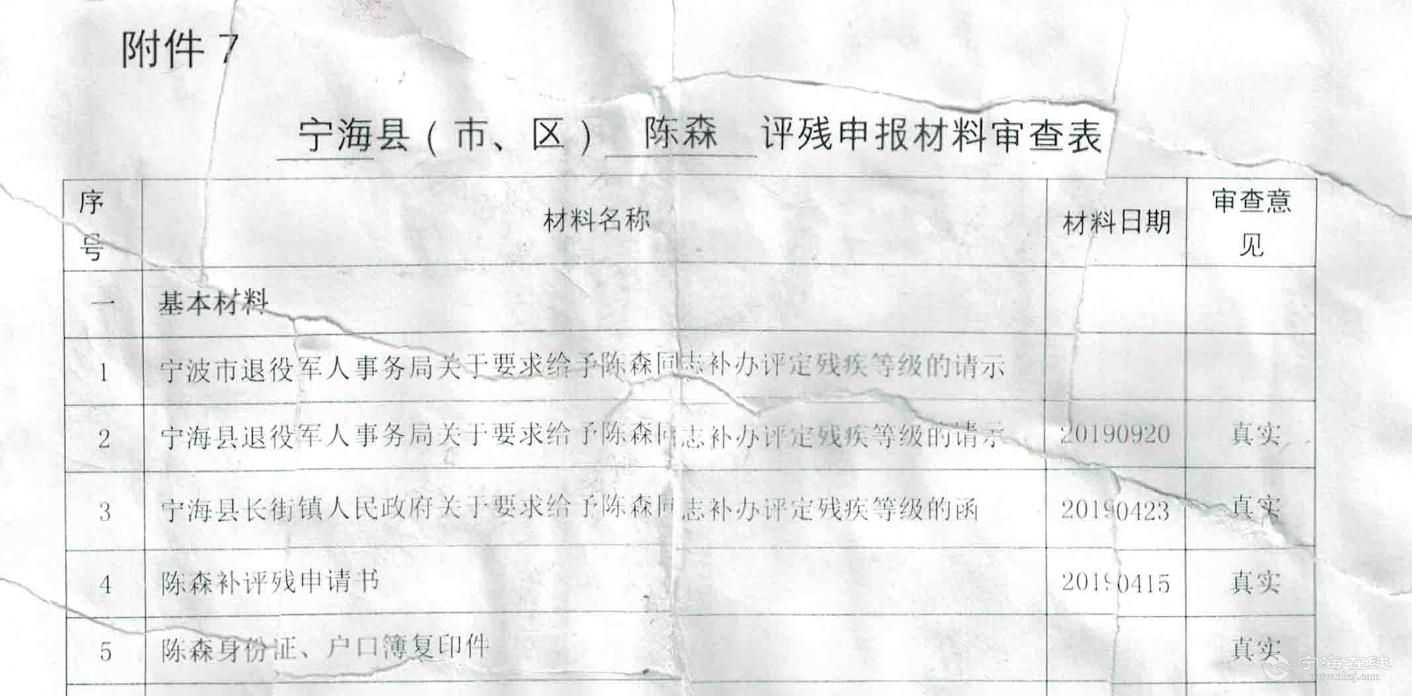 附件 7
宁海县（市、区） 陈森 评残申报材料审查表
序号 材料名称 材料日期 审查意见
一 基本材料
1 宁波市退役军人事务局关于要求给予陈森同志补办评定残疾等级的请示
2 宁海县退役军人事务局关于要求给予陈森同志补办评定残疾等级的请示 20190920 真实
3 宁海县长街镇人民政府关于要求给予陈森同志补办评定残疾等级的函 20190423 真实
4 陈森补评残申请书 20190415 真实
5 陈森身份证、户口簿复印件 真实
宁海在线
www.nhzj.com